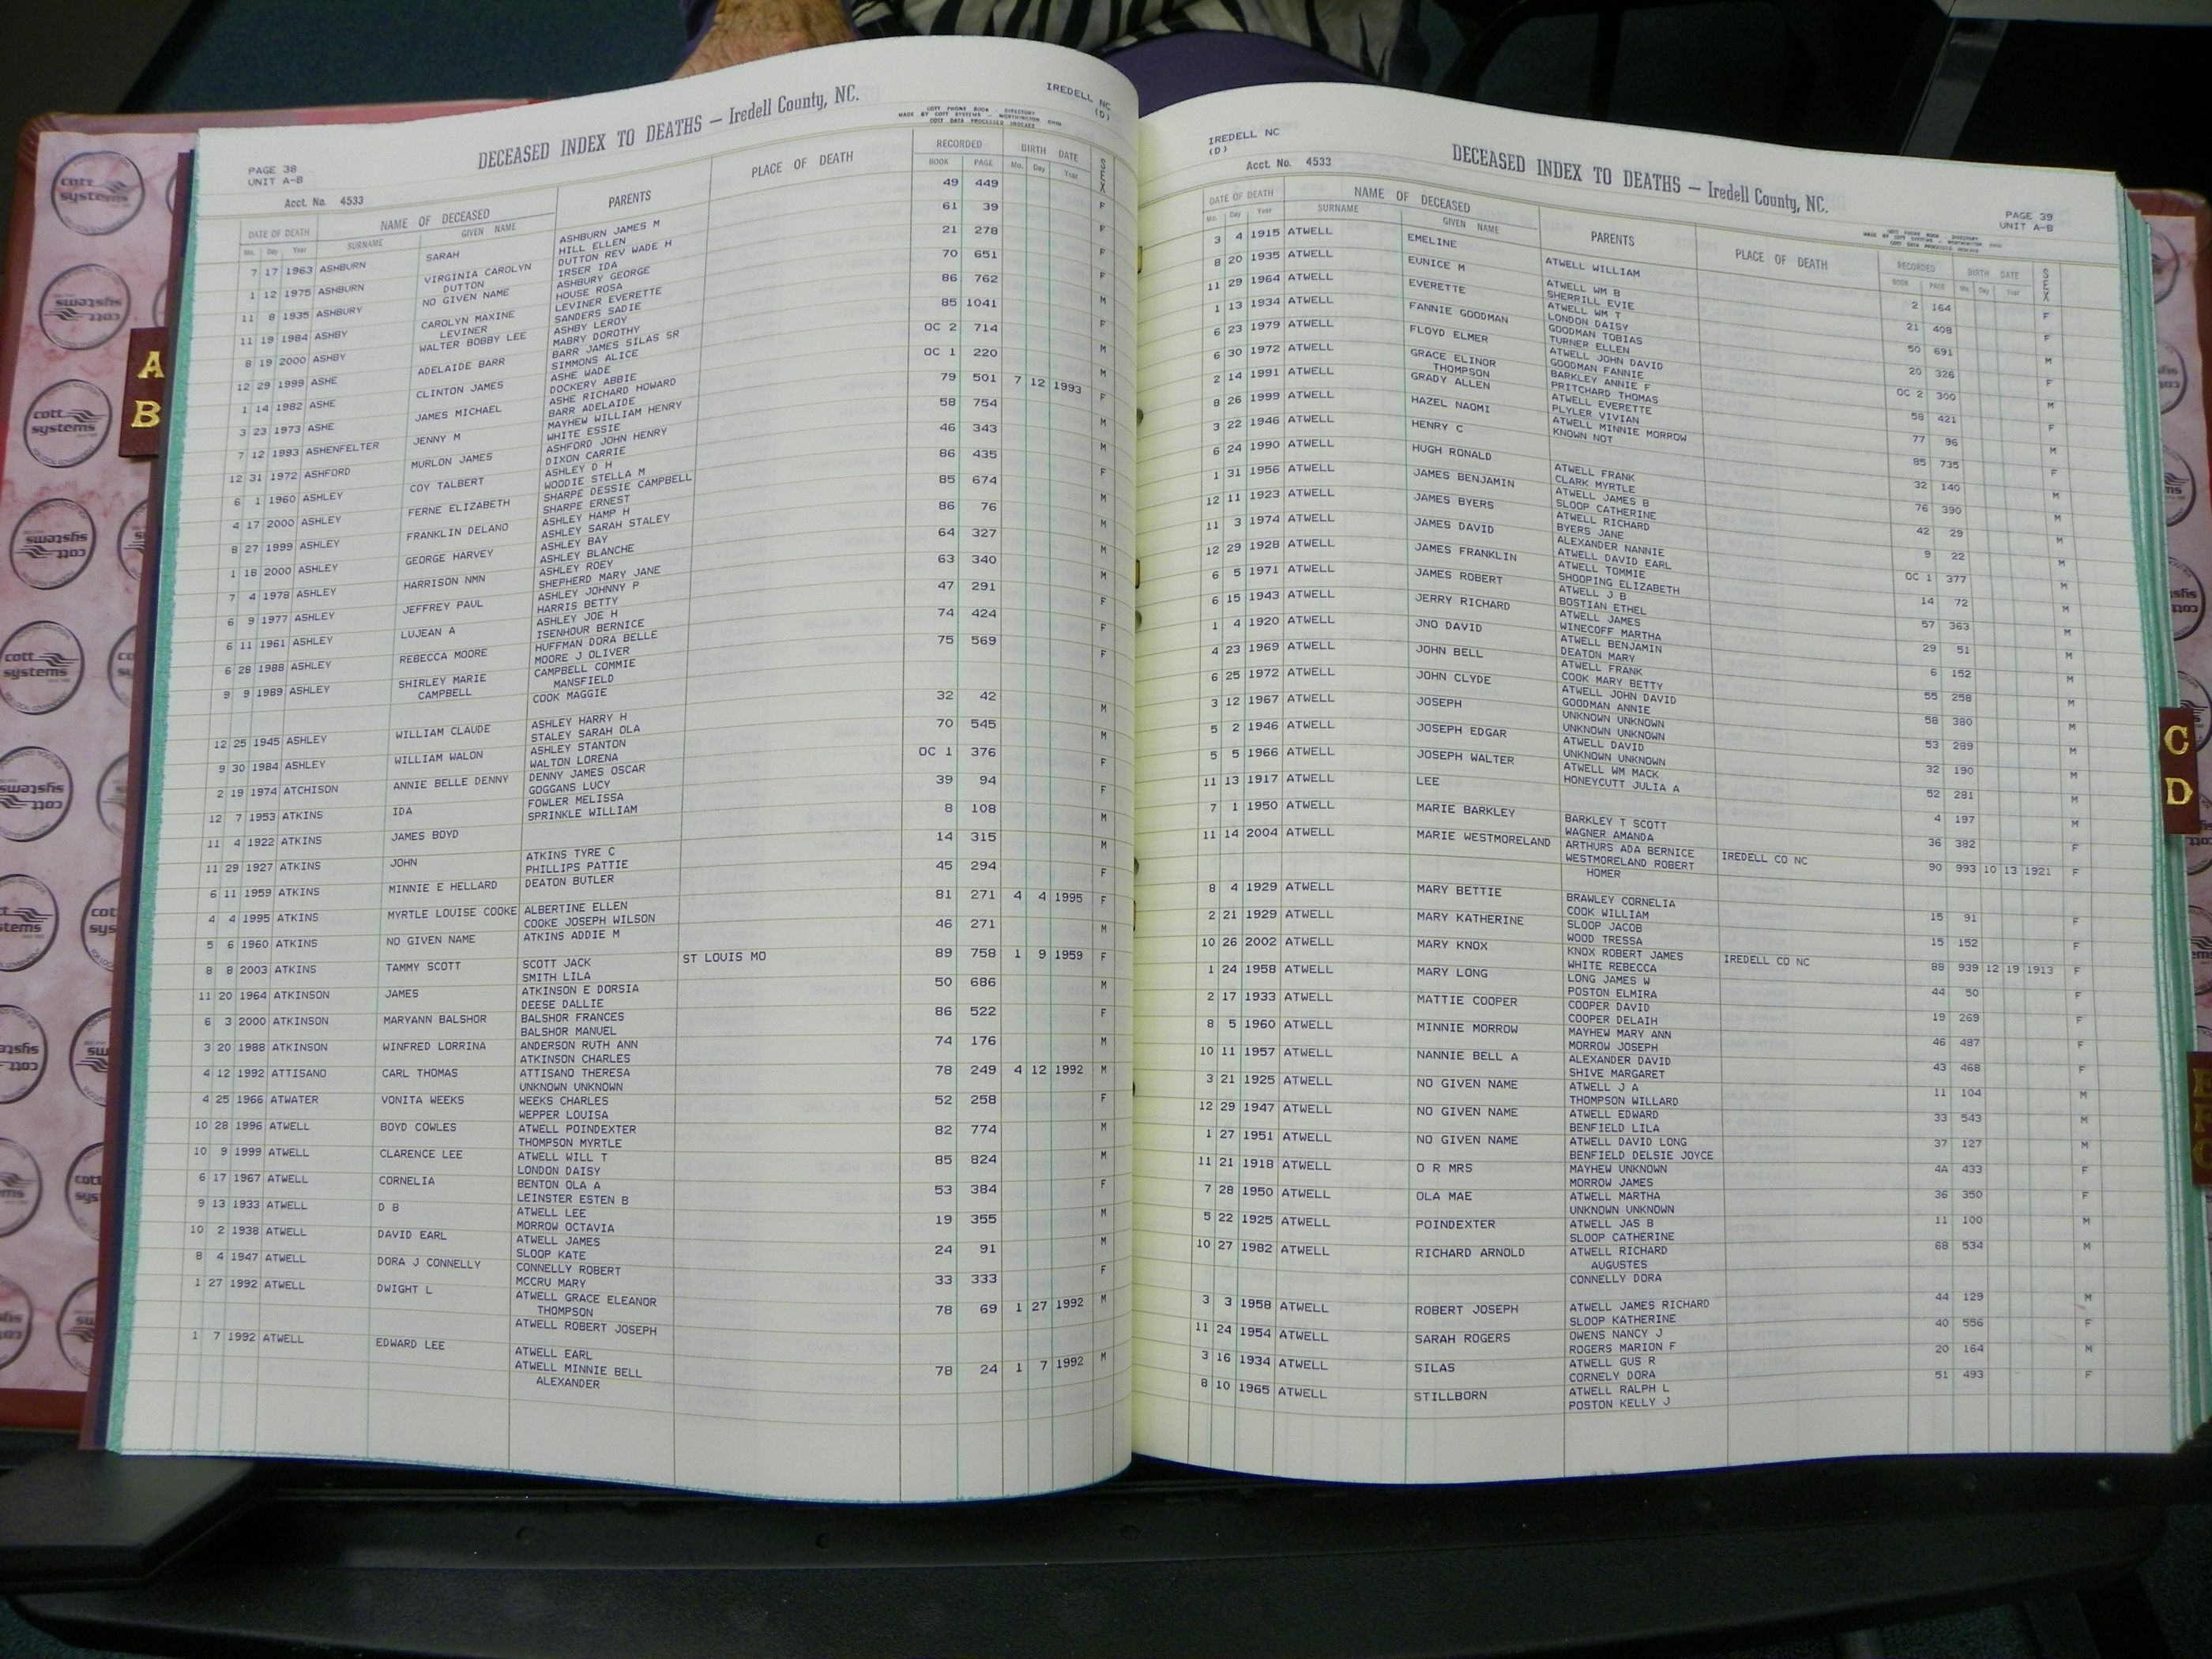 PAGE 38
UNIT A-B
DECEASED INDEX TO DEATHS — Iredell County, NC.
COTT PHONE BOOK - DIRECTORY
MADE BY COTT SYSTEMS - WORTHINGTON, OHIO
COTT DATA PROCESSED INDEXES
IREDELL NC
(D)
Acct. No. 4533
DATE OF DEATH NAME OF DECEASED PARENTS PLACE OF DEATH RECORDED BIRTH DATE SEX
Mo. Day Year SURNAME GIVEN NAME BOOK PAGE Mo. Day Year
7 17 1963 ASHBURN SARAH ASHBURN JAMES M 49 449 F
HILL ELLEN
1 12 1975 ASHBURN VIRGINIA CAROLYN DUTTON REV WADE H 61 39 F
DUTTON IRSER IDA
11 8 1935 ASHBURY NO GIVEN NAME ASHBURY GEORGE 21 278 F
HOUSE ROSA
11 19 1984 ASHBY CAROLYN MAXINE LEVINER EVERETTE 70 651 F
LEVINER SANDERS SADIE
8 19 2000 ASHBY WALTER BOBBY LEE ASHBY LEROY 86 762 M
MABRY DOROTHY
12 29 1999 ASHE ADELAIDE BARR BARR JAMES SILAS SR 85 1041 F
SIMMONS ALICE
1 14 1982 ASHE CLINTON JAMES ASHE WADE OC 2 714 M
DOCKERY ABBIE
3 23 1973 ASHE JAMES MICHAEL ASHE RICHARD HOWARD OC 1 220 M
BARR ADELAIDE
7 12 1993 ASHENFELTER JENNY M MAYHEW WILLIAM HENRY 79 501 7 12 1993 F
WHITE ESSIE
12 31 1972 ASHFORD MURLON JAMES ASHFORD JOHN HENRY 58 754 M
DIXON CARRIE
6 1 1960 ASHLEY COY TALBERT ASHLEY D H 46 343 M
WOODIE STELLA M
4 17 2000 ASHLEY FERNE ELIZABETH SHARPE DESSIE CAMPBELL 86 435 F
SHARPE ERNEST
8 27 1999 ASHLEY FRANKLIN DELANO ASHLEY HAMP H 85 674 M
ASHLEY SARAH STALEY
1 18 2000 ASHLEY GEORGE HARVEY ASHLEY BAY 86 76 M
ASHLEY BLANCHE
7 4 1978 ASHLEY HARRISON NMN ASHLEY ROEY 64 327 M
SHEPHERD MARY JANE
6 9 1977 ASHLEY JEFFREY PAUL ASHLEY JOHNNY P 63 340 M
HARRIS BETTY
6 11 1961 ASHLEY LUJEAN A ASHLEY JOE H 47 291 F
ISENHOUR BERNICE
6 28 1988 ASHLEY REBECCA MOORE HUFFMAN DORA BELLE 74 424 F
MOORE J OLIVER
9 9 1989 ASHLEY SHIRLEY MARIE CAMPBELL COMMIE 75 569 F
CAMPBELL MANSFIELD
COOK MAGGIE
12 25 1945 ASHLEY WILLIAM CLAUDE ASHLEY HARRY H 32 42 M
STALEY SARAH OLA
9 30 1984 ASHLEY WILLIAM WALON ASHLEY STANTON 70 545 M
WALTON LORENA
2 19 1974 ATCHISON ANNIE BELLE DENNY DENNY JAMES OSCAR OC 1 376 F
GOGGANS LUCY
12 7 1953 ATKINS IDA FOWLER MELISSA 39 94 F
SPRINKLE WILLIAM
11 4 1922 ATKINS JAMES BOYD 8 108 M
11 29 1927 ATKINS JOHN ATKINS TYRE C 14 315 M
PHILLIPS PATTIE
6 11 1959 ATKINS MINNIE E HELLARD DEATON BUTLER 45 294 F
4 4 1995 ATKINS MYRTLE LOUISE COOKE ALBERTINE ELLEN 81 271 4 4 1995 F
COOKE JOSEPH WILSON
5 6 1960 ATKINS NO GIVEN NAME ATKINS ADDIE M 46 271 M
8 8 2003 ATKINS TAMMY SCOTT SCOTT JACK ST LOUIS MO 89 758 1 9 1959 F
SMITH LILA
11 20 1964 ATKINSON JAMES ATKINSON E DORSIA 50 686 M
DEESE DALLIE
6 3 2000 ATKINSON MARYANN BALSHOR BALSHOR FRANCES 86 522 F
BALSHOR MANUEL
3 20 1988 ATKINSON WINFRED LORRINA ANDERSON RUTH ANN 74 176 M
ATKINSON CHARLES
4 12 1992 ATTISANO CARL THOMAS ATTISANO THERESA 78 249 4 12 1992 M
UNKNOWN UNKNOWN
4 25 1966 ATWATER VONITA WEEKS WEEKS CHARLES 52 258 F
WEPPER LOUISA
10 28 1996 ATWELL BOYD COWLES ATWELL POINDEXTER 82 774 M
THOMPSON MYRTLE
10 9 1999 ATWELL CLARENCE LEE ATWELL WILL T 85 824 M
LONDON DAISY
6 17 1967 ATWELL CORNELIA BENTON OLA A 53 384 F
LEINSTER ESTEN B
9 13 1933 ATWELL D B ATWELL LEE 19 355 M
MORROW OCTAVIA
10 2 1938 ATWELL DAVID EARL ATWELL JAMES 24 91 M
SLOOP KATE
8 4 1947 ATWELL DORA J CONNELLY CONNELLY ROBERT 33 333 F
MCCRU MARY
1 27 1992 ATWELL DWIGHT L ATWELL GRACE ELEANOR 78 69 1 27 1992 M
THOMPSON
ATWELL ROBERT JOSEPH
1 7 1992 ATWELL EDWARD LEE ATWELL EARL 78 24 1 7 1992 M
ATWELL MINNIE BELL
ALEXANDER
IREDELL NC
(D)
Acct. No. 4533
DECEASED INDEX TO DEATHS — Iredell County, NC.
PAGE 39
UNIT A-B
COTT PHONE BOOK - DIRECTORY
MADE BY COTT SYSTEMS - WORTHINGTON, OHIO
COTT DATA PROCESSED INDEXES
DATE OF DEATH NAME OF DECEASED PARENTS PLACE OF DEATH RECORDED BIRTH DATE SEX
Mo. Day Year SURNAME GIVEN NAME BOOK PAGE Mo. Day Year
3 4 1915 ATWELL EMELINE ATWELL WILLIAM 2 164 F
8 20 1935 ATWELL EUNICE M ATWELL WM B 21 408 F
SHERRILL EVIE
11 29 1964 ATWELL EVERETTE ATWELL WM T 50 691 M
LONDON DAISY
1 13 1934 ATWELL FANNIE GOODMAN GOODMAN TOBIAS 20 326 F
TURNER ELLEN
6 23 1979 ATWELL FLOYD ELMER ATWELL JOHN DAVID OC 2 300 M
GOODMAN FANNIE
6 30 1972 ATWELL GRACE ELINOR BARKLEY ANNIE F 58 421 F
THOMPSON PRITCHARD THOMAS
2 14 1991 ATWELL GRADY ALLEN ATWELL EVERETTE 77 96 M
PLYLER VIVIAN
8 26 1999 ATWELL HAZEL NAOMI ATWELL MINNIE MORROW 85 735 F
KNOWN NOT
3 22 1946 ATWELL HENRY C 32 140 M
6 24 1990 ATWELL HUGH RONALD ATWELL FRANK 76 390 M
CLARK MYRTLE
1 31 1956 ATWELL JAMES BENJAMIN ATWELL JAMES B 42 29 M
SLOOP CATHERINE
12 11 1923 ATWELL JAMES BYERS ATWELL RICHARD 9 22 M
BYERS JANE
11 3 1974 ATWELL JAMES DAVID ALEXANDER NANNIE OC 1 377 M
ATWELL DAVID EARL
12 29 1928 ATWELL JAMES FRANKLIN ATWELL TOMMIE 14 72 M
SHOOPING ELIZABETH
6 5 1971 ATWELL JAMES ROBERT ATWELL J B 57 363 M
BOSTIAN ETHEL
6 15 1943 ATWELL JERRY RICHARD ATWELL JAMES 29 51 M
WINECOFF MARTHA
1 4 1920 ATWELL JNO DAVID ATWELL BENJAMIN 6 152 M
DEATON MARY
4 23 1969 ATWELL JOHN BELL ATWELL FRANK 55 258 M
COOK MARY BETTY
6 25 1972 ATWELL JOHN CLYDE ATWELL JOHN DAVID 58 380 M
GOODMAN ANNIE
3 12 1967 ATWELL JOSEPH UNKNOWN UNKNOWN 53 289 M
UNKNOWN UNKNOWN
5 2 1946 ATWELL JOSEPH EDGAR ATWELL DAVID 32 190 M
UNKNOWN UNKNOWN
5 5 1966 ATWELL JOSEPH WALTER ATWELL WM MACK 52 281 M
HONEYCUTT JULIA A
11 13 1917 ATWELL LEE 4 197 M
7 1 1950 ATWELL MARIE BARKLEY BARKLEY T SCOTT 36 382 F
WAGNER AMANDA
11 14 2004 ATWELL MARIE WESTMORELAND ARTHURS ADA BERNICE IREDELL CO NC 90 993 10 13 1921 F
WESTMORELAND ROBERT
HOMER
8 4 1929 ATWELL MARY BETTIE BRAWLEY CORNELIA 15 91 F
COOK WILLIAM
2 21 1929 ATWELL MARY KATHERINE SLOOP JACOB 15 152 F
WOOD TRESSA
10 26 2002 ATWELL MARY KNOX KNOX ROBERT JAMES IREDELL CO NC 88 939 12 19 1913 F
WHITE REBECCA
1 24 1958 ATWELL MARY LONG LONG JAMES W 44 50 F
POSTON ELMIRA
2 17 1933 ATWELL MATTIE COOPER COOPER DAVID 19 269 F
COOPER DELAIH
8 5 1960 ATWELL MINNIE MORROW MAYHEW MARY ANN 46 487 F
MORROW JOSEPH
10 11 1957 ATWELL NANNIE BELL A ALEXANDER DAVID 43 468 F
SHIVE MARGARET
3 21 1925 ATWELL NO GIVEN NAME ATWELL J A 11 104 M
THOMPSON WILLARD
12 29 1947 ATWELL NO GIVEN NAME ATWELL EDWARD 33 543 M
BENFIELD LILA
1 27 1951 ATWELL NO GIVEN NAME ATWELL DAVID LONG 37 127 M
BENFIELD DELSIE JOYCE
11 21 1918 ATWELL O R MRS MAYHEW UNKNOWN 4A 433 F
MORROW JAMES
7 28 1950 ATWELL OLA MAE ATWELL MARTHA 36 350 F
UNKNOWN UNKNOWN
5 22 1925 ATWELL POINDEXTER ATWELL JAS B 11 100 M
SLOOP CATHERINE
10 27 1982 ATWELL RICHARD ARNOLD ATWELL RICHARD 68 534 M
AUGUSTES
CONNELLY DORA
3 3 1958 ATWELL ROBERT JOSEPH ATWELL JAMES RICHARD 44 129 M
SLOOP KATHERINE
11 24 1954 ATWELL SARAH ROGERS OWENS NANCY J 40 556 F
ROGERS MARION F
3 16 1934 ATWELL SILAS ATWELL GUS R 20 164 M
CORNELY DORA
8 10 1965 ATWELL STILLBORN ATWELL RALPH L 51 493 F
POSTON KELLY J
A
B
C
D
cott
systems